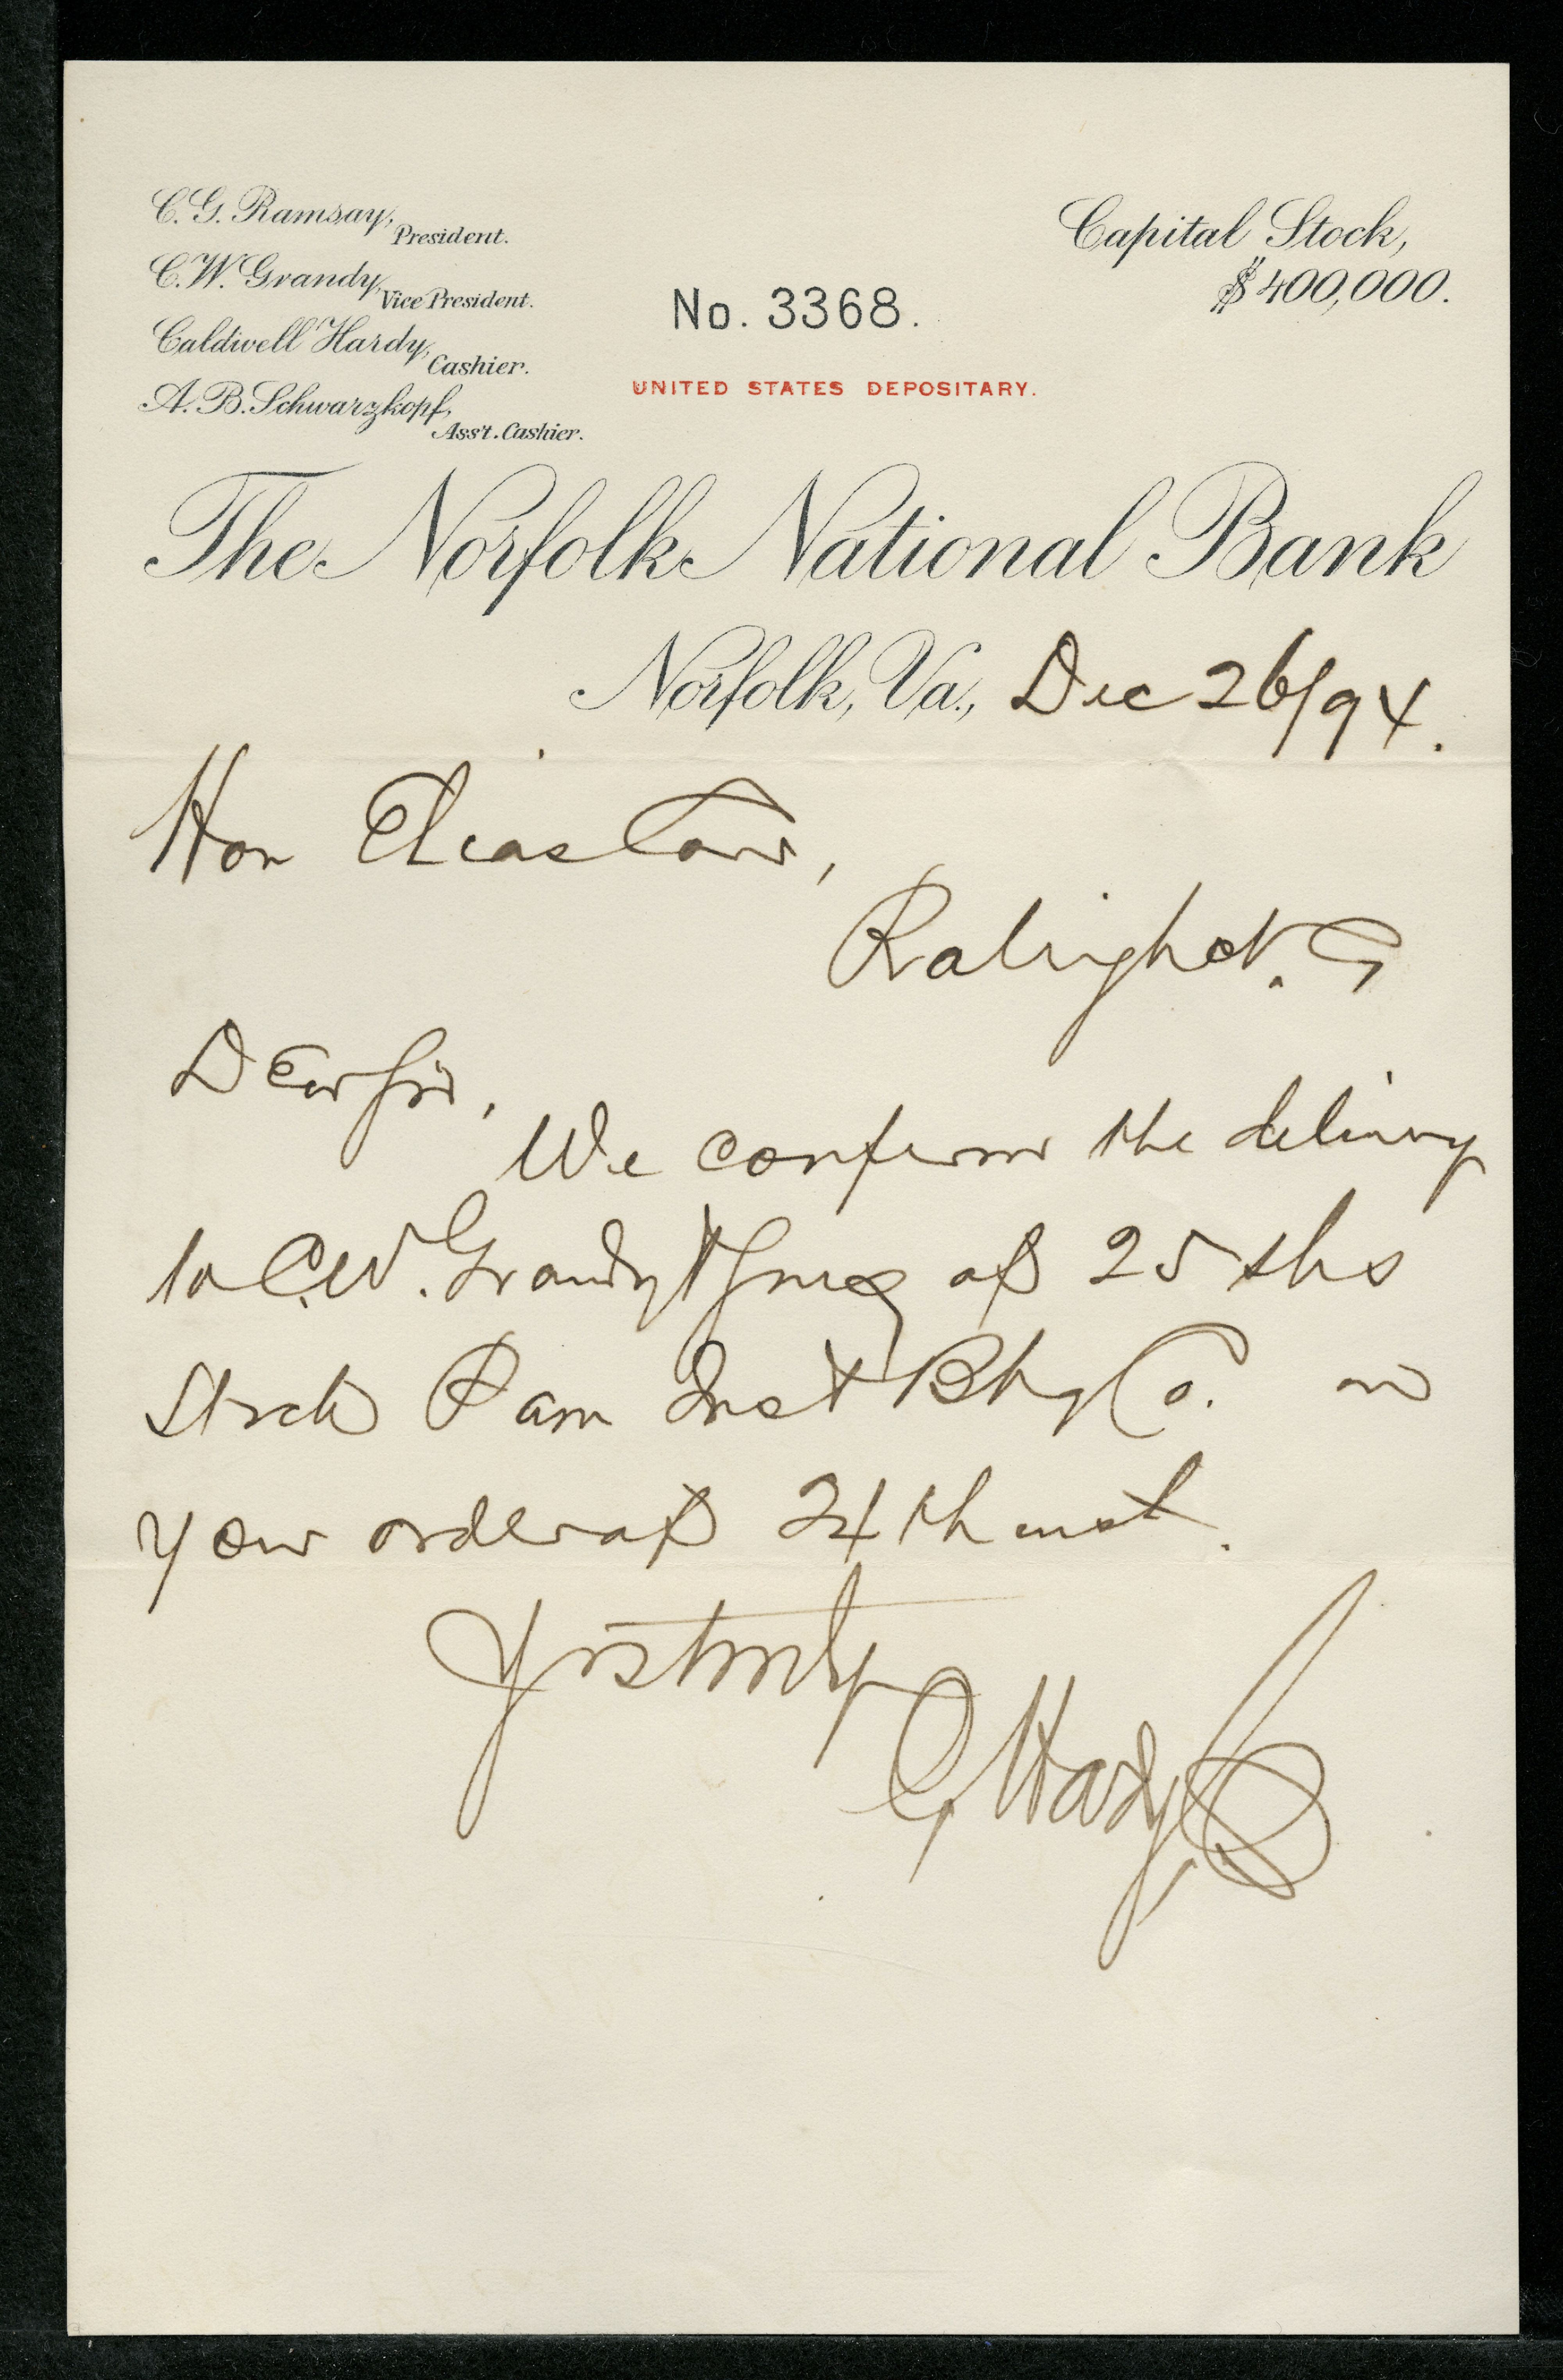 C. G. Ramsay,
President.
C. W. Grandy,
Vice President.
Caldwell Hardy,
Cashier.
A. B. Schwarzkopf,
Ass't. Cashier.
Capital Stock,
$400,000.
No. 3368.
UNITED STATES DEPOSITARY.
The Norfolk National Bank
Norfolk, Va., Dec 26/94.
Hon Elias Carr,
Raleigh N. C
Dear Sir,
We confirm the delivery
to C. W. Grandy & Sons of 25 shs
Stock Pam Inst Bkg Co. on
your order of 24th inst.
Yrs truly
C. Hardy